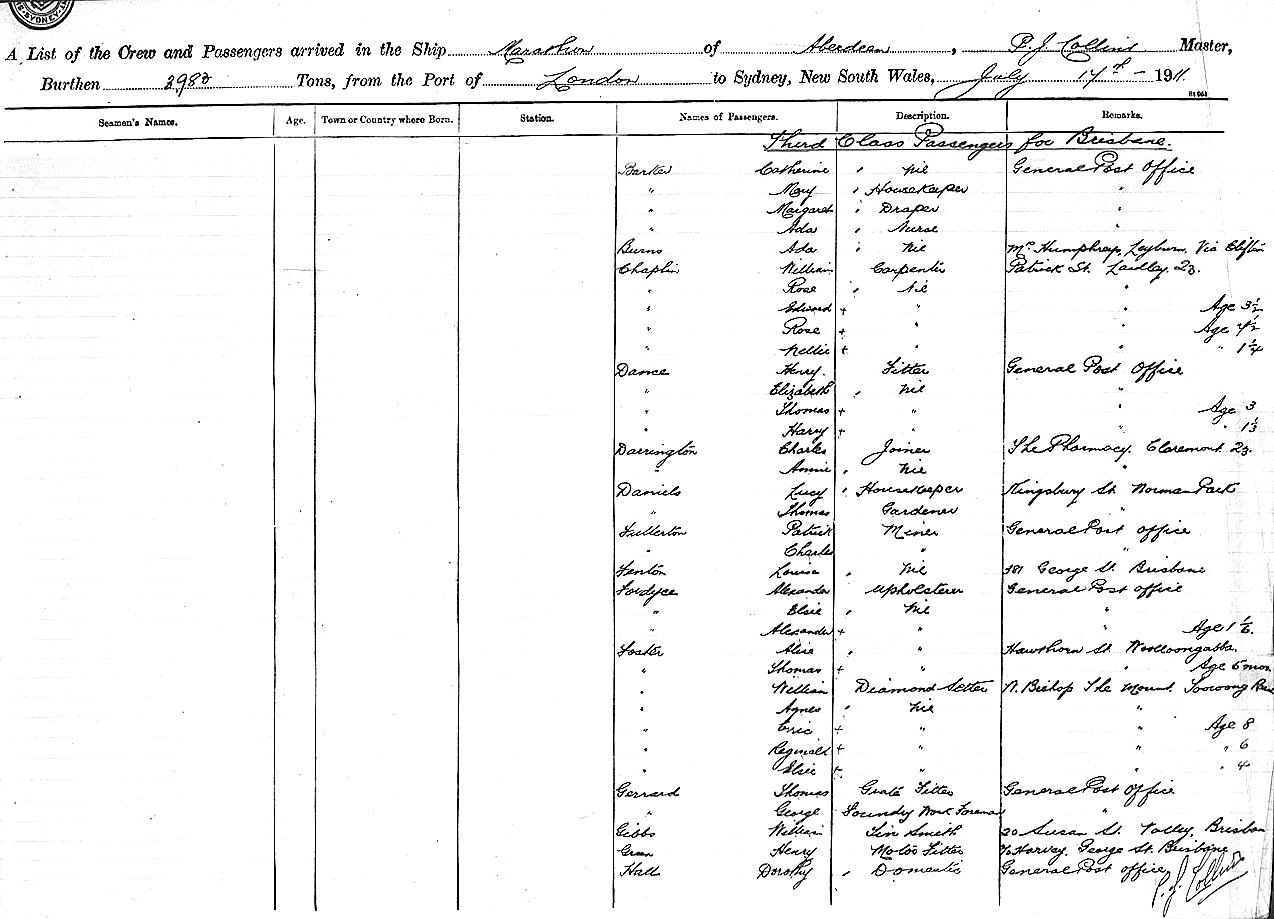 SYDNEY
A List of the Crew and Passengers arrived in the Ship Marathon of Aberdeen, P. J. Collins Master,
Burthen 3980 Tons, from the Port of London to Sydney, New South Wales, July 14th – 1911.
Seamen's Names. Age. Town or Country where Born. Station. Names of Passengers. Description. Remarks.
Third Class Passengers for Brisbane.
Barker Catherine , Nil General Post Office
" Mary , Housekeeper "
" Margaret , Draper "
" Ada , Nurse "
Burns Ada , Nil Mrs Humphrey, Leyburn, Via Clifton
Chaplin William Carpenter Patrick St. Laidley. 23.
" Rose , Nil "
" Edward + " " Age 3½
" Rose + " " Age 4½
" Nellie + " " " 1¼
Dance Henry. Fitter General Post Office
" Elizabeth , Nil "
" Thomas + " " Age 3
" Harry + " " " 1⅓
Darrington Charles Joiner The Pharmacy. Claremont. 23.
" Annie , Nil "
Daniels Lucy , Housekeeper Kingsbury St. Norman Park
" Thomas Gardener "
Fullerton Patrick Miner General Post Office
" Charles " "
Fenton Louisa , Nil 381 George St. Brisbane
Fordyce Alexander Upholsterer General Post Office
" Elsie , Nil "
" Alexander + " " Age 1 1/6.
Foster Alice , " Hawthorn St. Woolloongabba.
" Thomas + " " Age 5 mon
" William Diamond Setter N. Bishop The Mount. Toowong
" Agnes , Nil "
" Eric + " " Age 8
" Reginald + " " " 6
" Elsie + " " " 4
Gerrard Thomas Grate Fitter General Post Office
" George Foundry Work Foreman "
Gibbs William Tin Smith 20 Susan St. Valley, Brisban
Green Henry Motor Fitter c/o Harvey. George St. Brisbane
Hall Dorothy , Domestic General Post Office
P. J. Collins